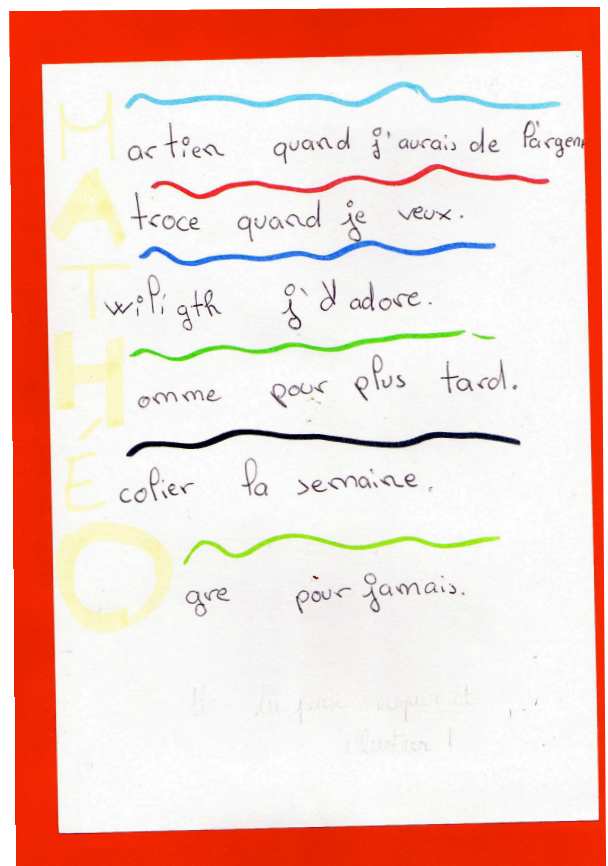 Martien quand j'aurais de l'argent
Atroce quand je veux.
Twiligth j'd adore.
Homme pour plus tard.
Écolier la semaine.
Ogre pour jamais.
tu peux